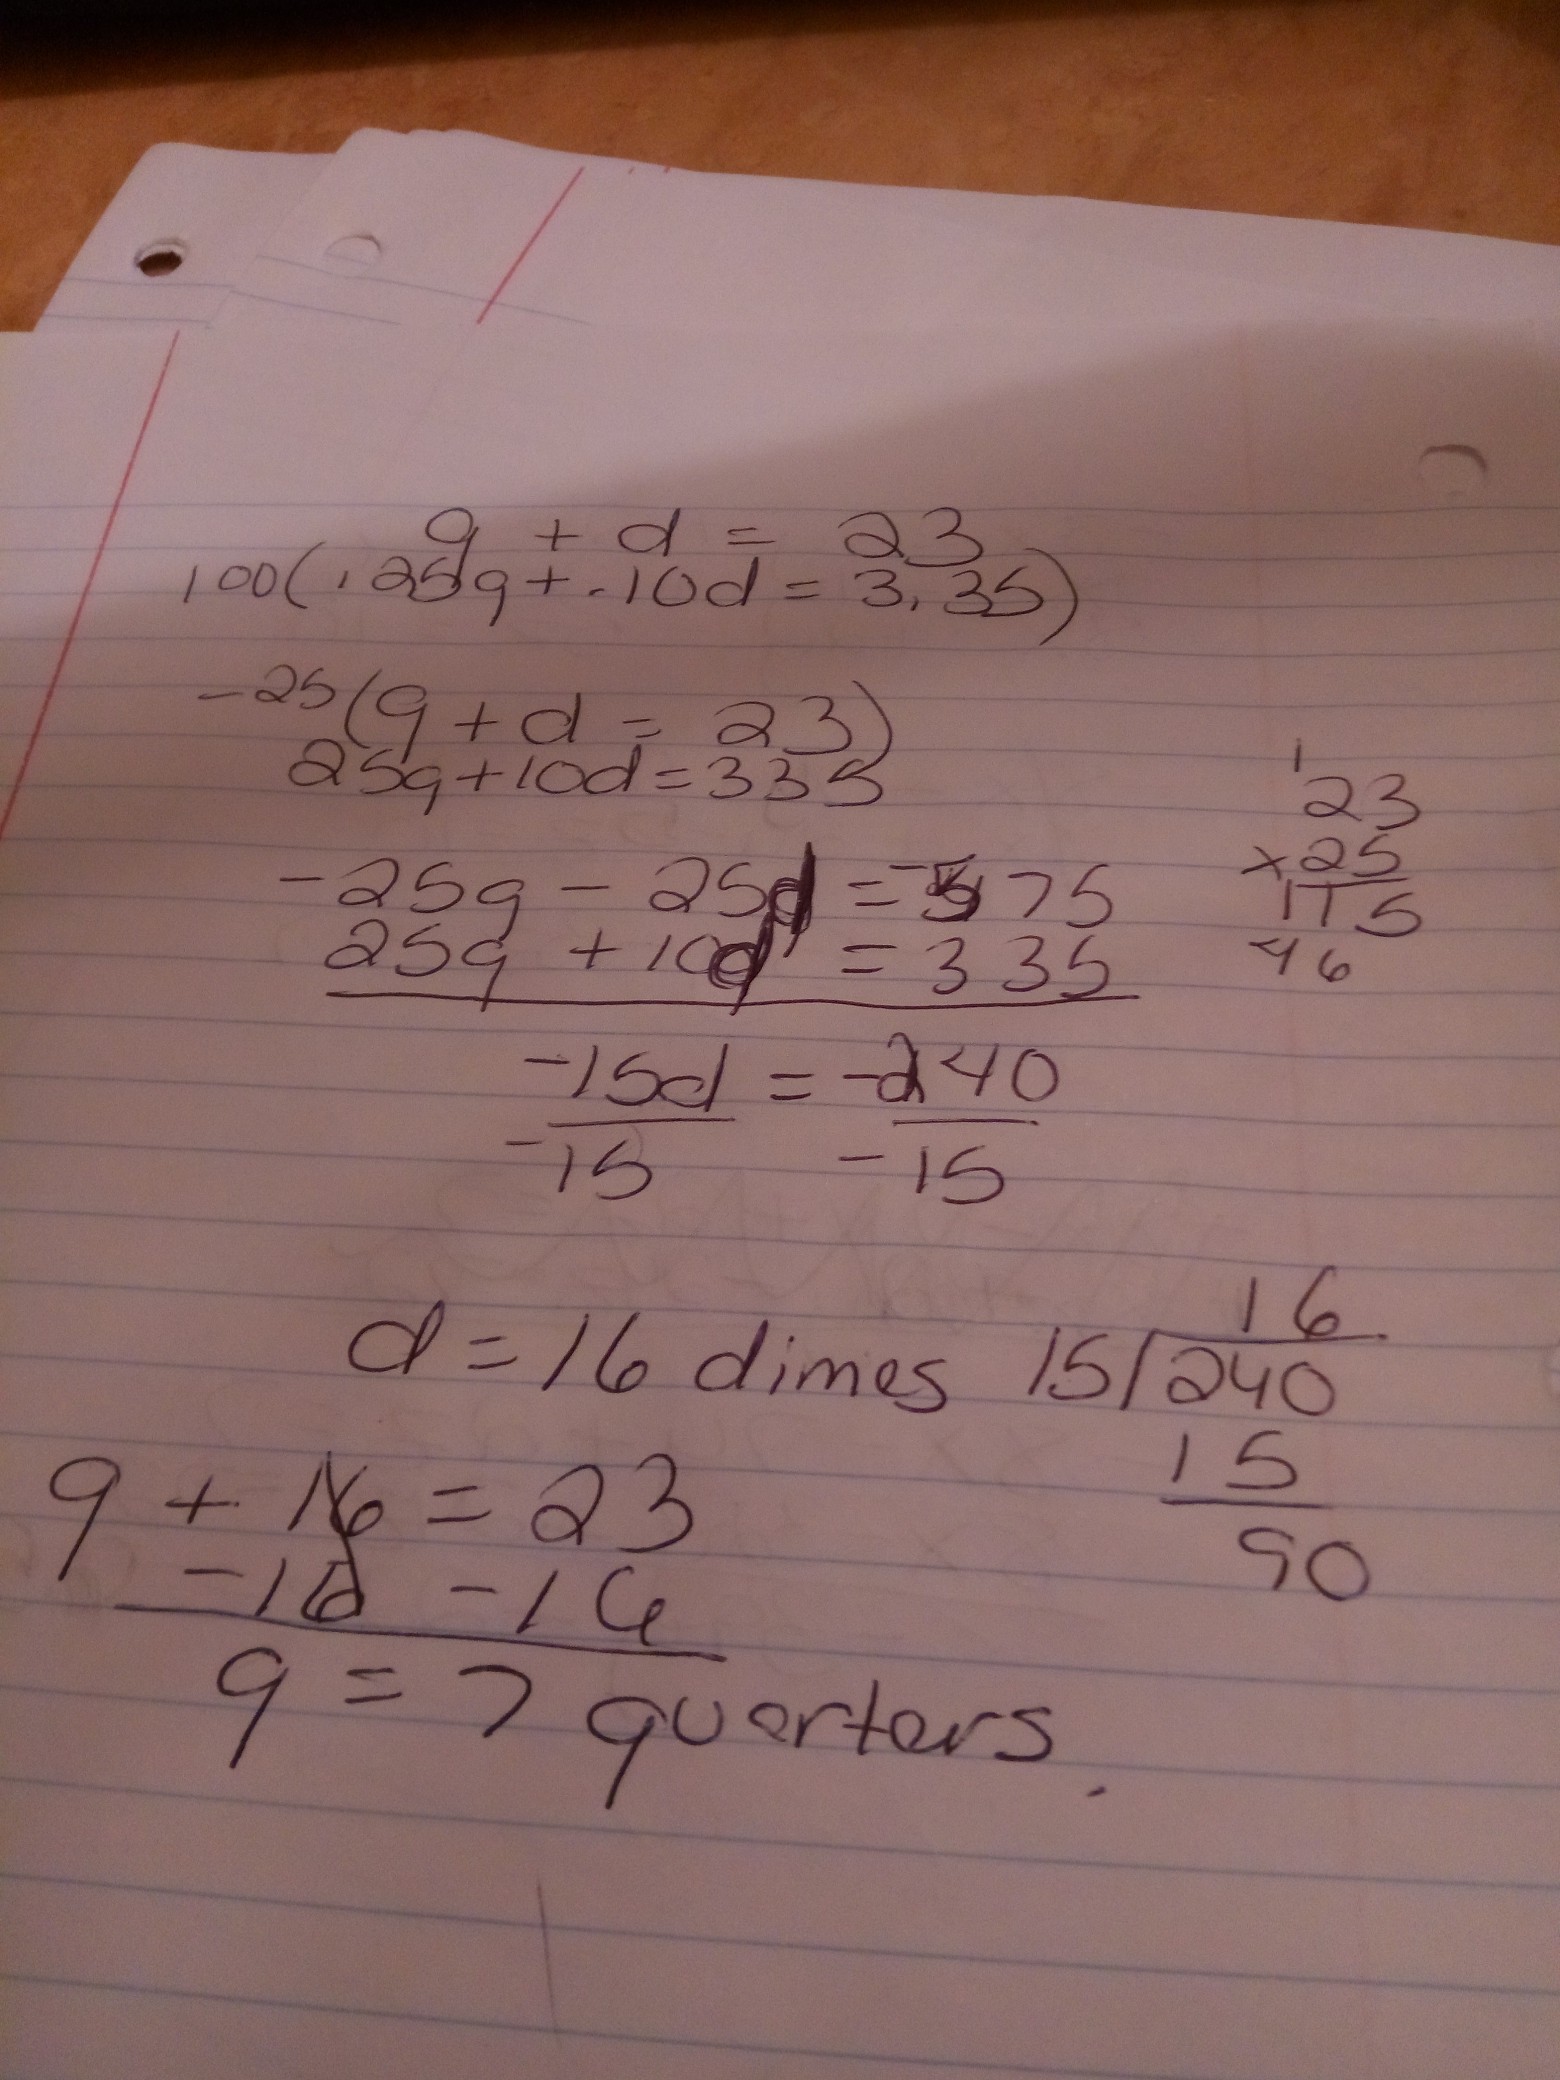 q + d = 23
100(.25q + .10d = 3.35)
-25(q + d = 23)
25q + 10d = 335
-25q - 25d = -575
25q + 10d = 335
-15d = -240
-15 -15
1
23
x 25
115
46
d = 16 dimes
16
15)240
15
90
q + 16 = 23
-16 -16
q = 7 quarters.